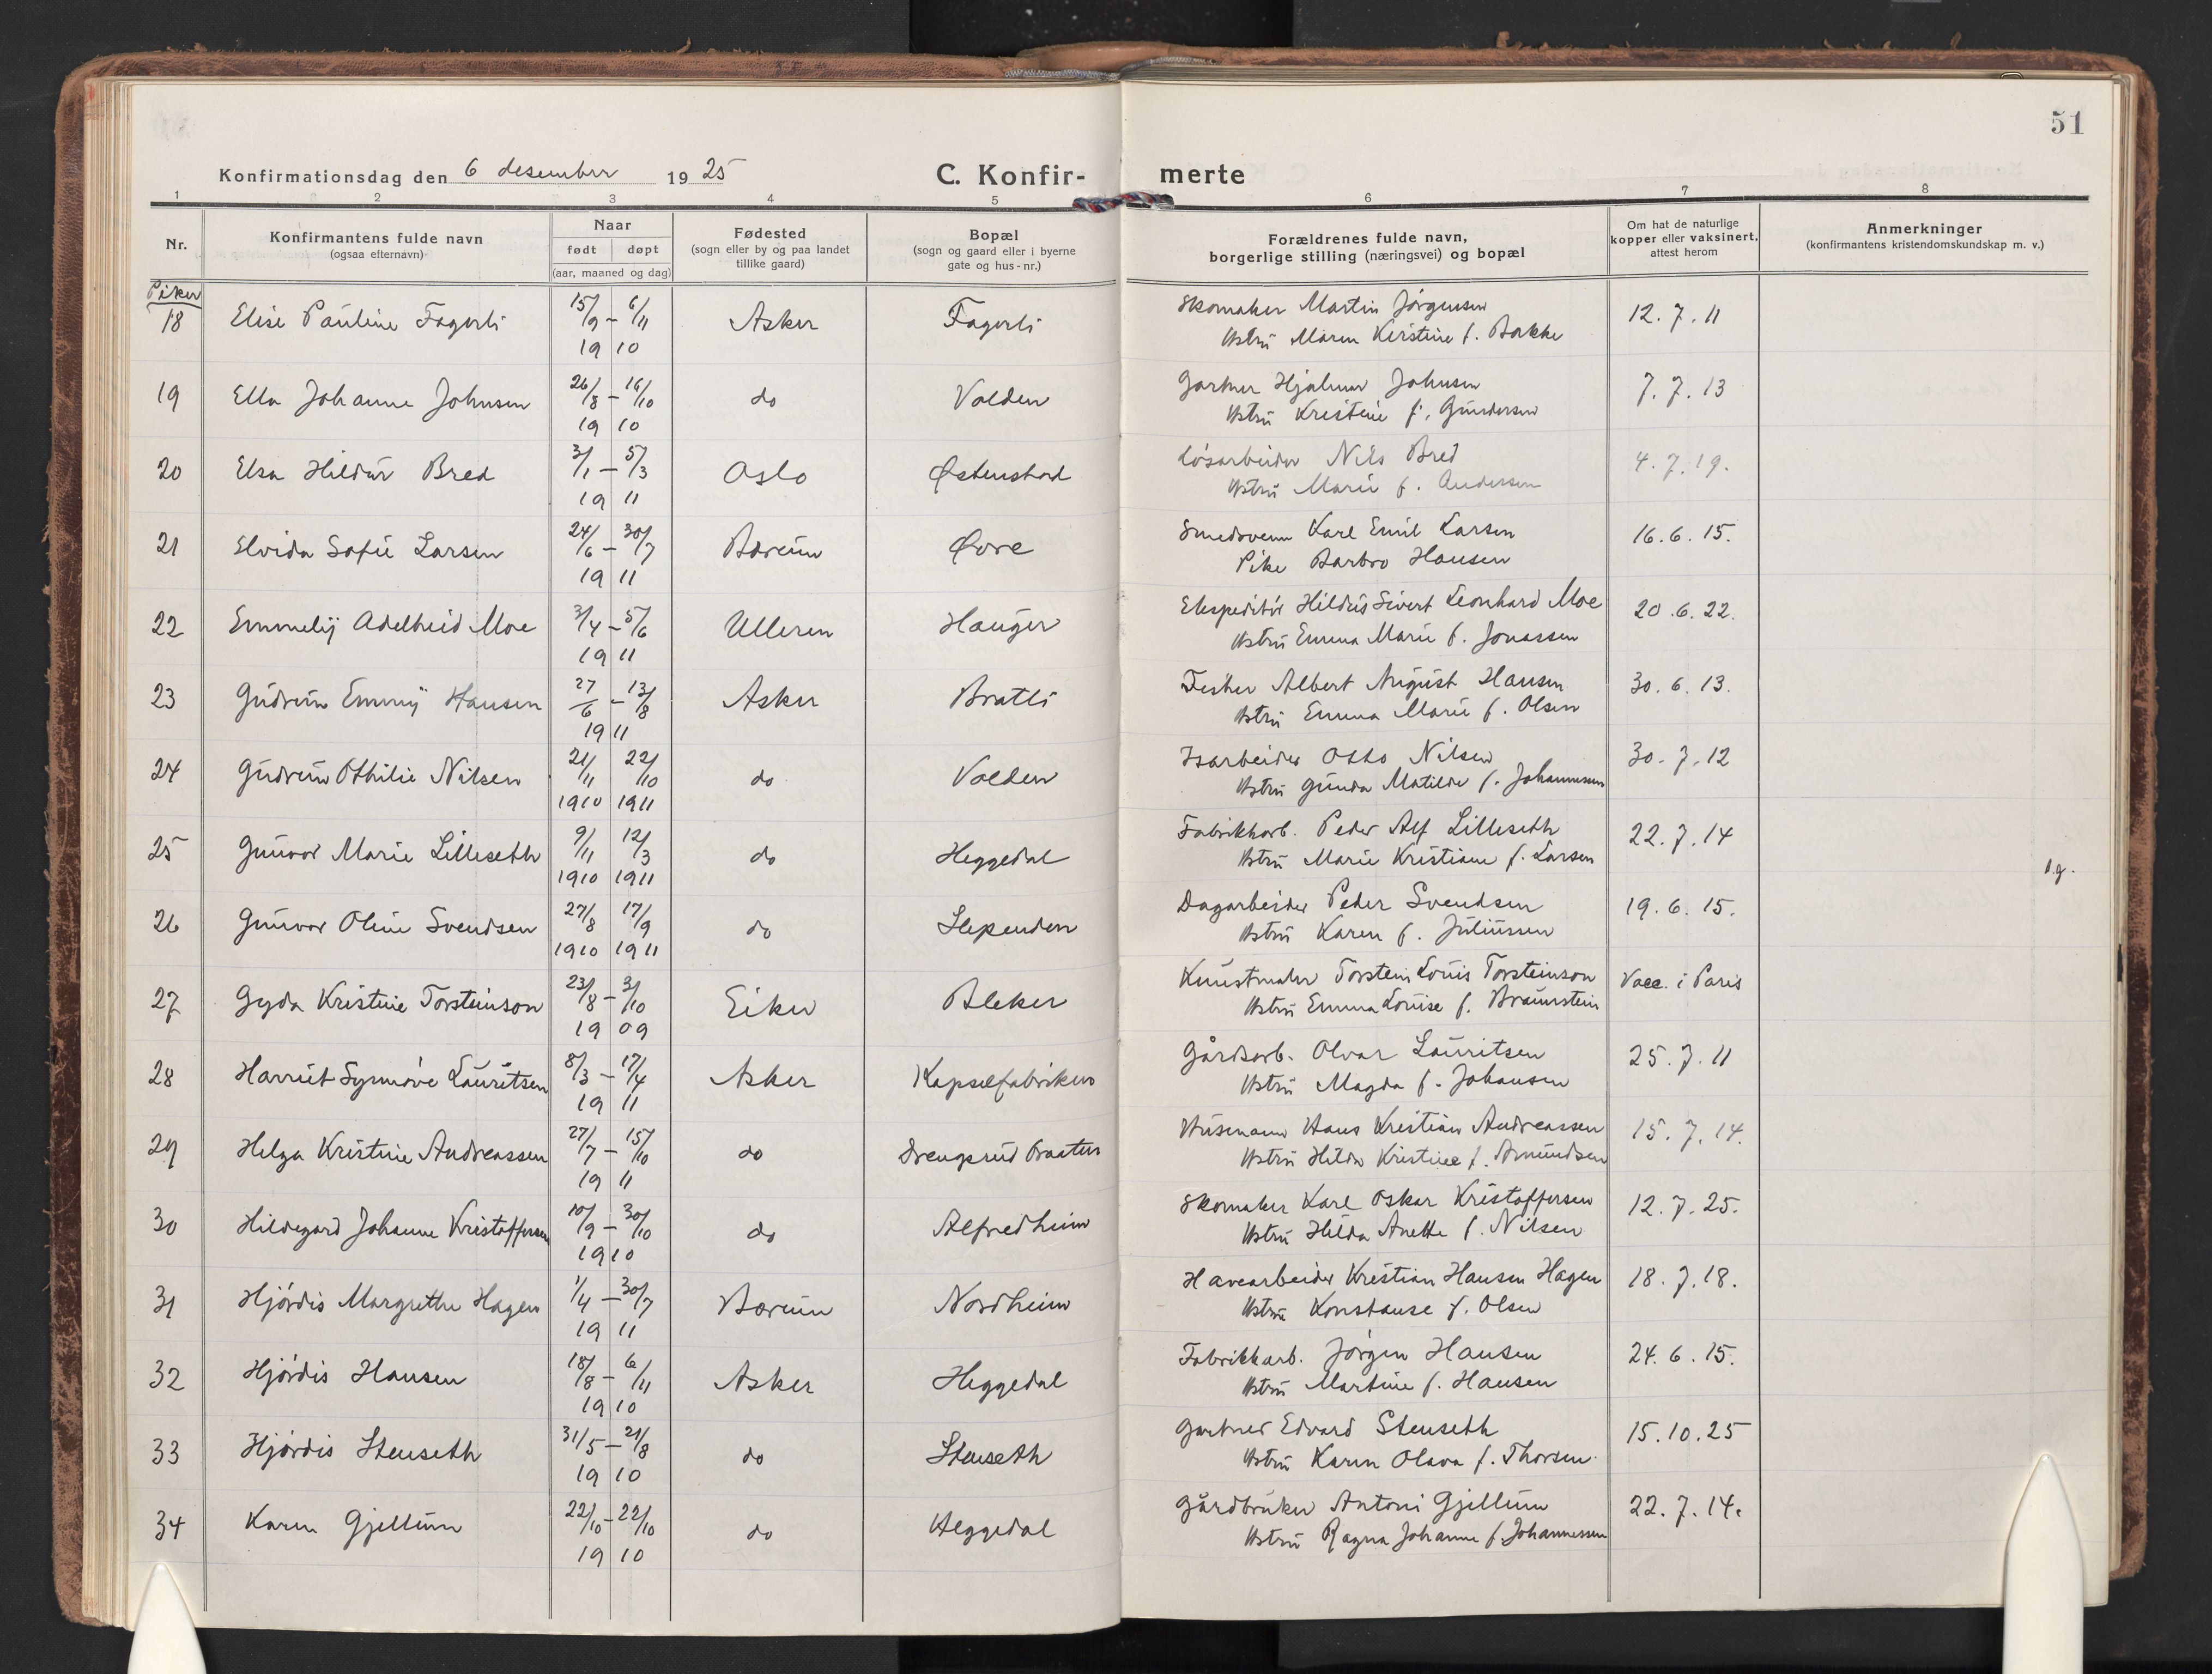 51
Konfirmationsdag den 6 desember 1925
C. Konfir-merte
1 2 3 4 5 6 7 8
Nr.
Konfirmantens fulde navn
(ogsaa efternavn)
Naar
født døpt
(aar, maaned og dag)
Fødested
(sogn eller by og paa landet
tillike gaard)
Bopæl
(sogn og gaard eller i byerne
gate og hus-nr.)
Forældrenes fulde navn,
borgerlige stilling (næringsvei) og bopæl
Om hat de naturlige
kopper eller vaksinert,
attest herom
Anmerkninger
(konfirmantens kristendomskundskap m. v.)
Piker
18 Elise Pauline Fagerli 15/9 – 6/11 1910 Asker Fagerli Skomaker Martin Jørgensen 12.7.11
Hstru Maren Kirstine f. Bakke
19 Ella Johanne Johnsen 26/8 – 16/10 1910 do Valden Gartner Hjalmar Johnsen 7.7.13
Hstru Kristine f. Gundersen
20 Elsa Hildur Bred 3/1 – 5/3 1911 Oslo Østenstad Løsarbeider Nils Bred 4.7.19.
Hstru Marie f. Andersen
21 Elvida Sofie Larsen 24/6 – 30/7 1911 Bærum Øvre Smedsvenn Karl Emil Larsen 16.6.15.
Pike Barbro Hansen
22 Emmely Adelheid Moe 3/4 – 5/6 1911 Ulleren Hauger Ekspeditør Hildus Sivert Leonhard Moe 20.6.22.
Hstru Emma Marie f. Jonassen
23 Gudrun Emmy Hansen 27/6 – 13/8 1911 Asker Bratli Fisker Albert August Hansen 30.6.13.
Hstru Emma Marie f. Olsen
24 Gudrun Othilie Nilsen 21/11 1910 22/10 1911 do Valden Isarbeider Otto Nilsen 30.7.12
Hstru Gunda Matilde f. Johannesen
25 Gunvor Marie Lilleseth 9/11 1910 12/3 1911 do Heggedal Fabrikkarb. Peder Alf Lilleseth 22.7.14
Hstru Marie Kristiane f. Larsen
n.g.
26 Gunvor Oline Svendsen 27/8 1910 17/9 1911 do Slependen Dagarbeider Peder Svendsen 19.6.15.
Hstru Karen f. Juliussen
27 Gyda Kristine Torsteinson 23/8 – 3/10 1909 Eiker Bleker Kunstmaler Torstein Louis Torsteinson Vacc. i Paris
Hstru Emma Louise f. Braunstein
28 Harriet Synnøve Lauritsen 8/3 – 17/4 1911 Asker Kapselfabrikken Gårdsarb. Olvar Lauritsen 25.7.11
Hstru Magda f. Johansen
29 Helga Kristine Andreassen 27/7 – 15/10 1911 do Drengsrud Braaten Husmann Hans Kristian Andreassen 15.7.14.
Hstru Hilda Kristine f. Amundsen
30 Hildegard Johanne Kristoffersen 10/9 – 30/10 1910 do Alfredheim Skomaker Karl Oskar Kristoffersen 12.7.25.
Hstru Hilda Anette f. Nilsen
31 Hjørdis Margrethe Hagen 1/4 – 30/7 1911 Bærum Nordheim Havearbeider Kristian Hansen Hagen 18.7.18.
Hstru Konstanse f. Olsen
32 Hjørdis Hansen 18/8 – 6/11 1910 Asker Heggedal Fabrikkarb. Jørgen Hansen 24.6.15.
Hstru Martine f. Hansen
33 Hjørdis Stenseth 31/5 – 21/8 1910 do Stenseth Gartner Edvard Stenseth 15.10.25
Hstru Karen Olava f. Thorsen
34 Karen Gjellum 22/10 – 22/10 1910 do Heggedal Gårdbruker Antoni Gjellum 22.7.14.
Hstru Ragna Johanne f. Johannessen